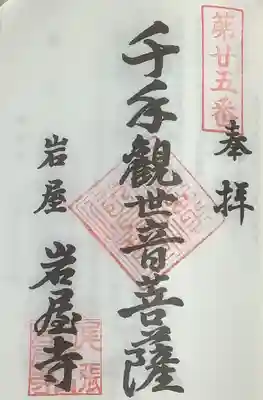 第廿五番
奉拝
千手觀世音菩薩
岩屋
岩屋寺
尾張